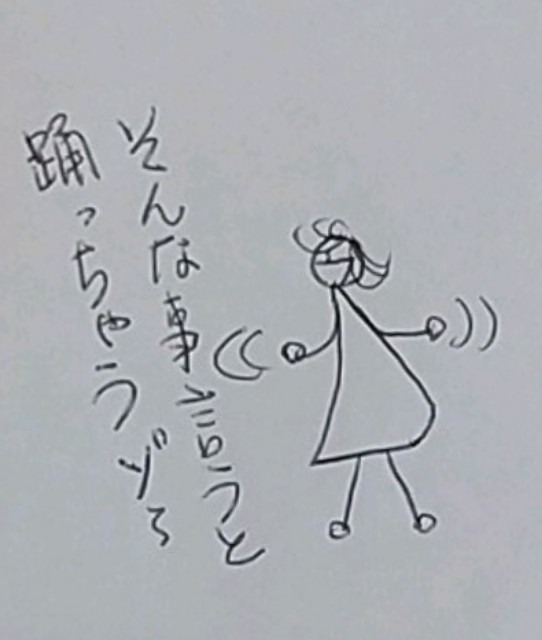 そんな事言うと
踊っちゃうぞぅ